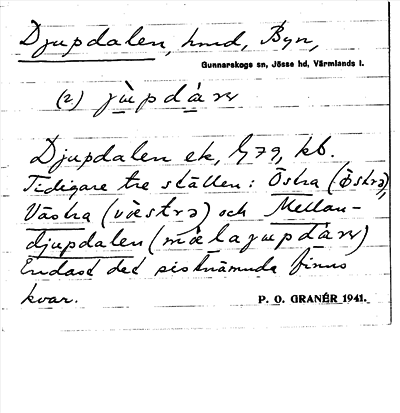 Djupdalen, hmd, Byn,
Gunnarskogs sn, Jösse hd, Värmlands l.
(2) jùpdáɳ
Djupdalen ek,
Tidigare tre ställen: Östra (östrə),
Västra (vèstrə) och Mellan-
djupdalen (mèlajupdáɳ)
Endast det sistnämnda finns
kvar.
P. O. GRANÉR 1941.